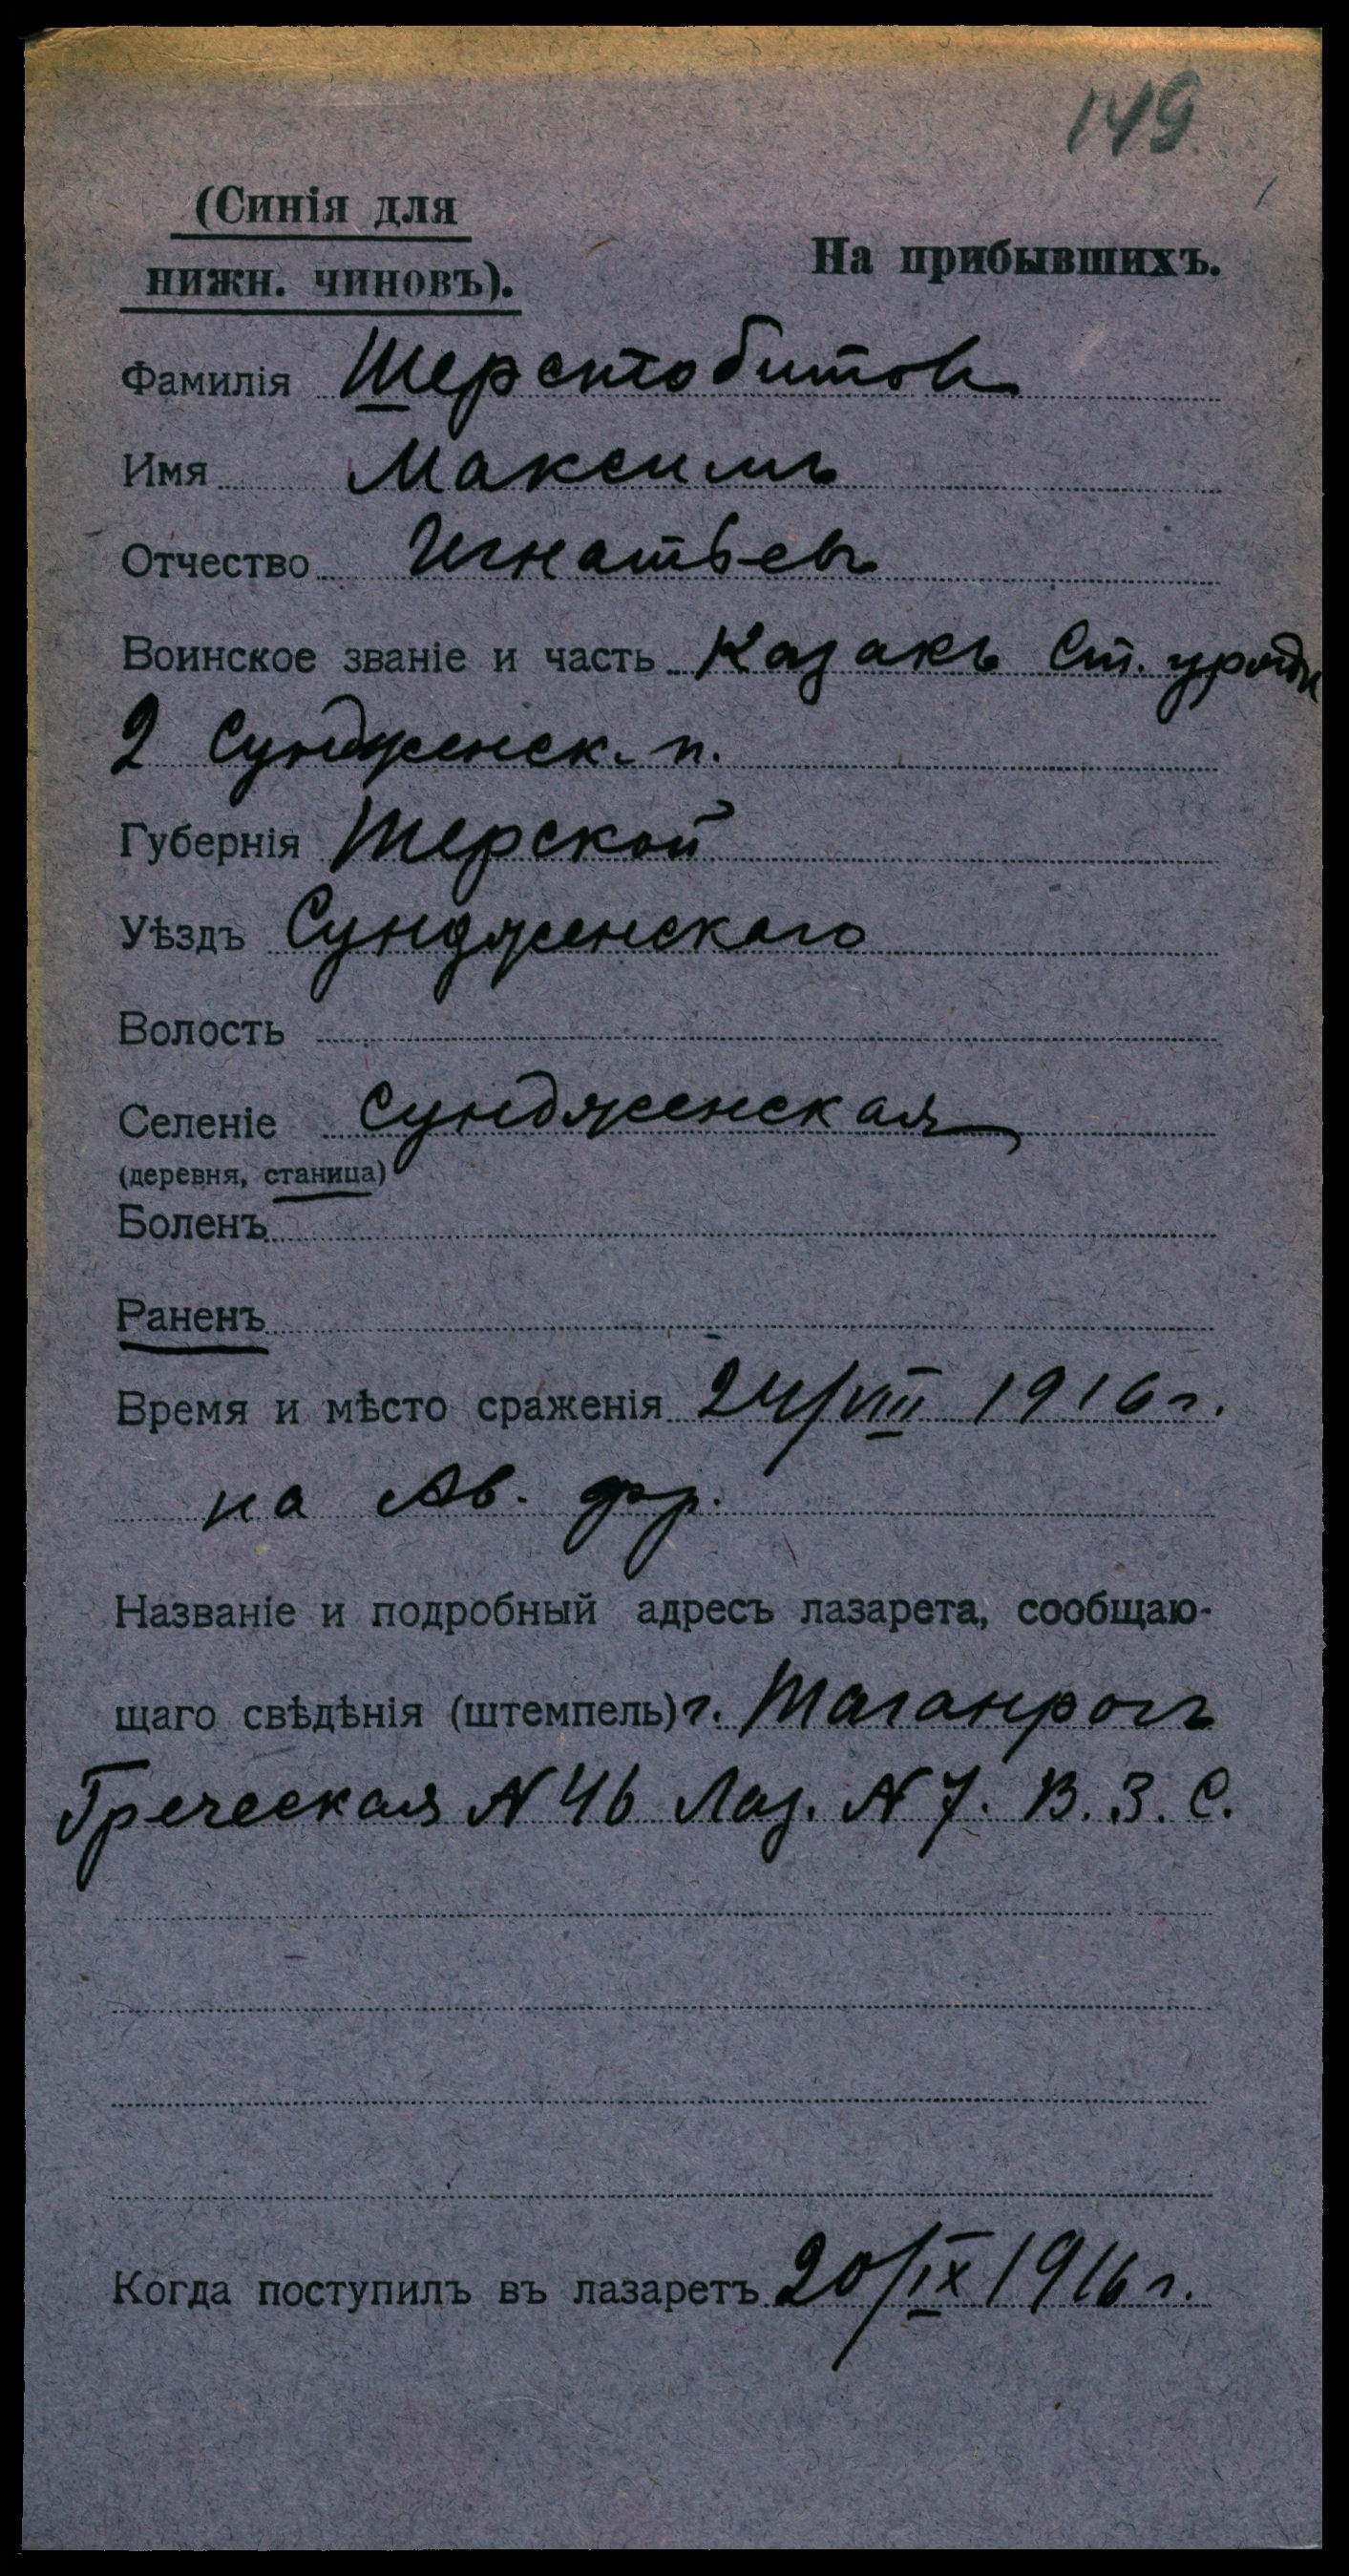 149
(Синія для
нижн. чиновъ).
На прибывшихъ.
Фамилія Шерстобитовъ
Имя Максимъ
Отчество Игнатьевъ
Воинское званіе и часть Казакъ Ст. урядн
2 Сундженск. п.
Губернія Терской
Уѣздъ Сундженскаго
Волость
Селеніе Сундженская
(деревня, станица)
Боленъ
Раненъ
Время и мѣсто сраженія 24/VIII 1916 г.
на Ав. фр.
Названіе и подробный адресъ лазарета, сообщаю-
щаго свѣдѣнія (штемпель) г. Таганрогъ
Греческая № 46 Лаз. № 7. В. З. С.
Когда поступилъ въ лазаретъ 20/IX 1916 г.